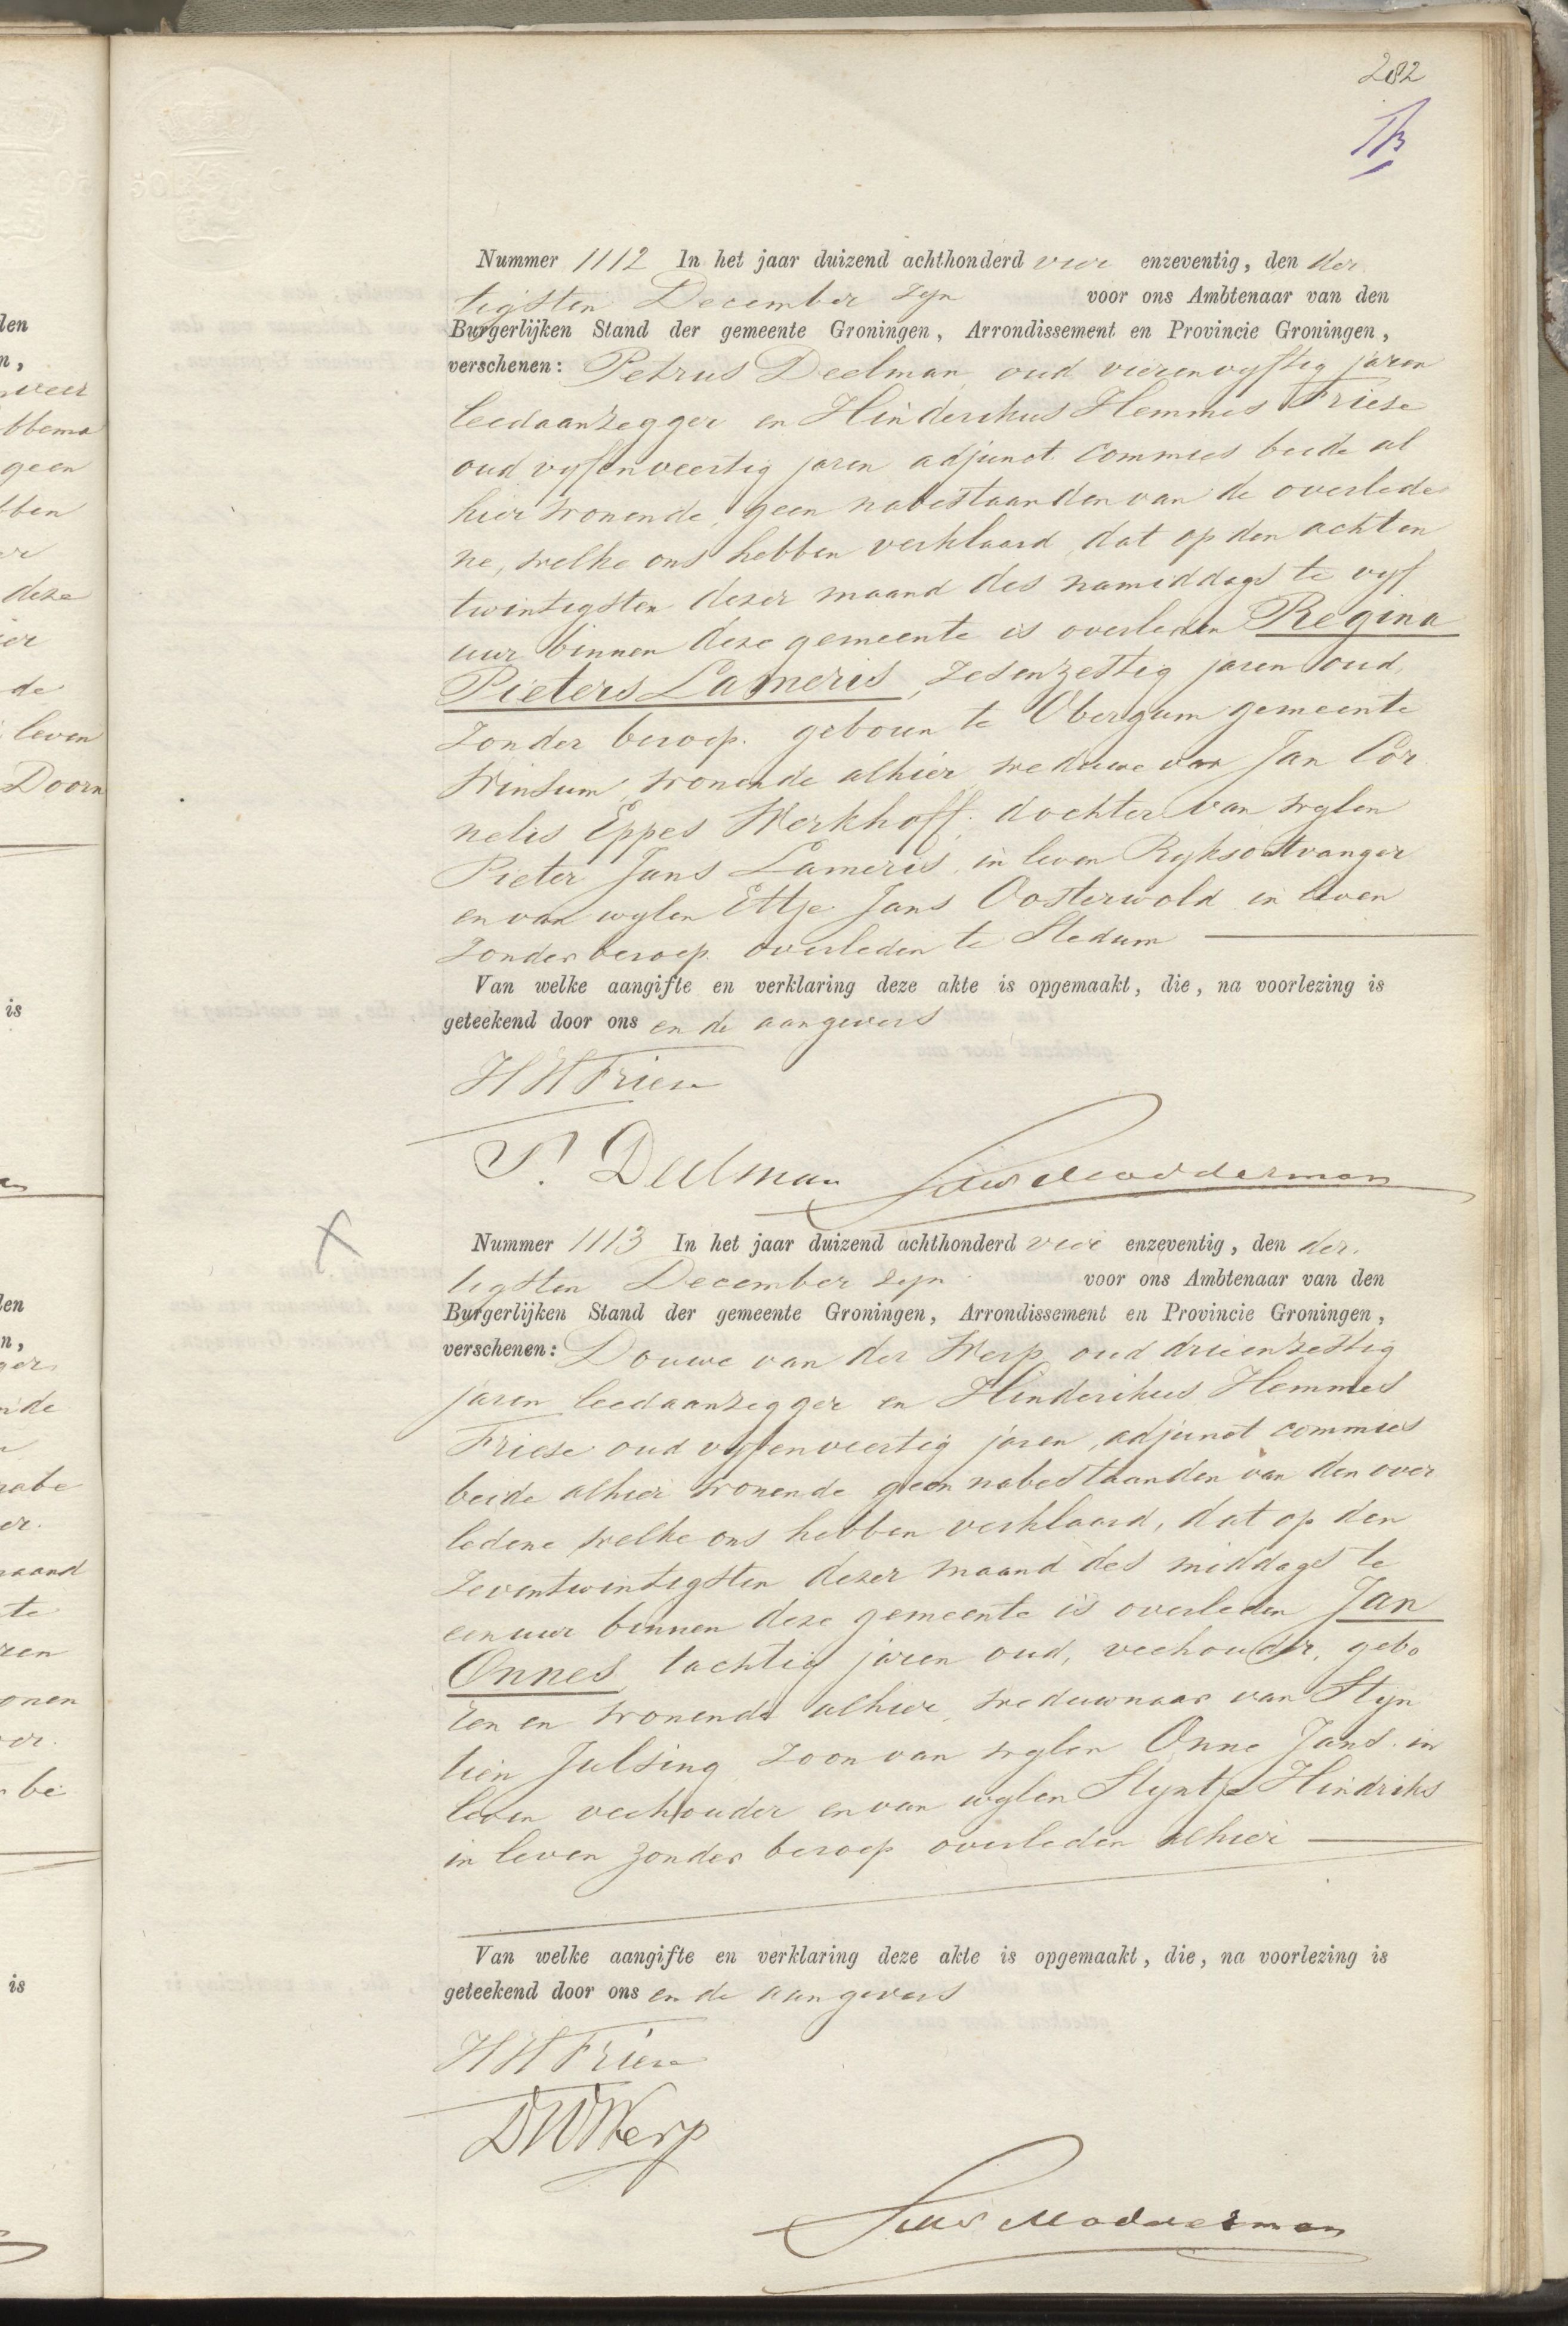 282
Nummer 1112 In het jaar duizend achthonderd vier enzeventig, den der
tigsten December zyn voor ons Ambtenaar van den
Burgerlijken Stand der gemeente Groningen, Arrondissement en Provincie Groningen,
verschenen: Petrus Deelman, oud vierenvyftig jaren
leedaanzegger en Hinderikus Hemmes Friese
oud vyfenveertig jaren adjunct commies beide al
hier wonende, geen nabestaanden van de overlede
ne, welke ons hebben verklaard, dat op den achten
twintigsten dezer maand des namiddags te vyf
uur binnen deze gemeente is overleden Regina
Pieters Lameris, zesenzestig jaren oud,
zonder beroep. geboren te Obergum gemeente
Winsum, wonende alhier, weduwe van Jan Cor
nelis Eppes Werkhoff, dochter van wylen
Pieter Jans Lameris, in leven Ryksontvanger
en van wylen Ettje Jans Oosterwold in leven
zonder beroep. overleden te Stedum
Van welke aangifte en verklaring deze akte is opgemaakt, die, na voorlezing is
geteekend door ons en de aangevers
HH Friese
P. Deelman Modderman
Nummer 1113 In het jaar duizend achthonderd vier enzeventig, den der.
tigsten December zyn voor ons Ambtenaar van den
Burgerlijken Stand der gemeente Groningen, Arrondissement en Provincie Groningen,
verschenen: Douwe van der Werp, oud drieenzestig
jaren leedaanzegger en Hinderikus Hemmes
Friese oud vyfenveertig jaren, adjunct commies
beide alhier wonende geen nabestaanden van den over
ledene welke ons hebben verklaard, dat op den
zevantwintigsten dezer maand des middags te
een uur binnen deze gemeente is overleden Jan
Onnes, tachtig jaren oud, veehouder, gebo
ren en wonende alhier, weduwnaar van Styn
tien Julsing zoon van wylen Onne Jans. in
leven veehouder en van wylen Styntje Hindriks
in leven zonder beroep overleden alhier
Van welke aangifte en verklaring deze akte is opgemaakt, die, na voorlezing is
geteekend door ons en de aangevers
HH Friese
DVDWerp
Modderman